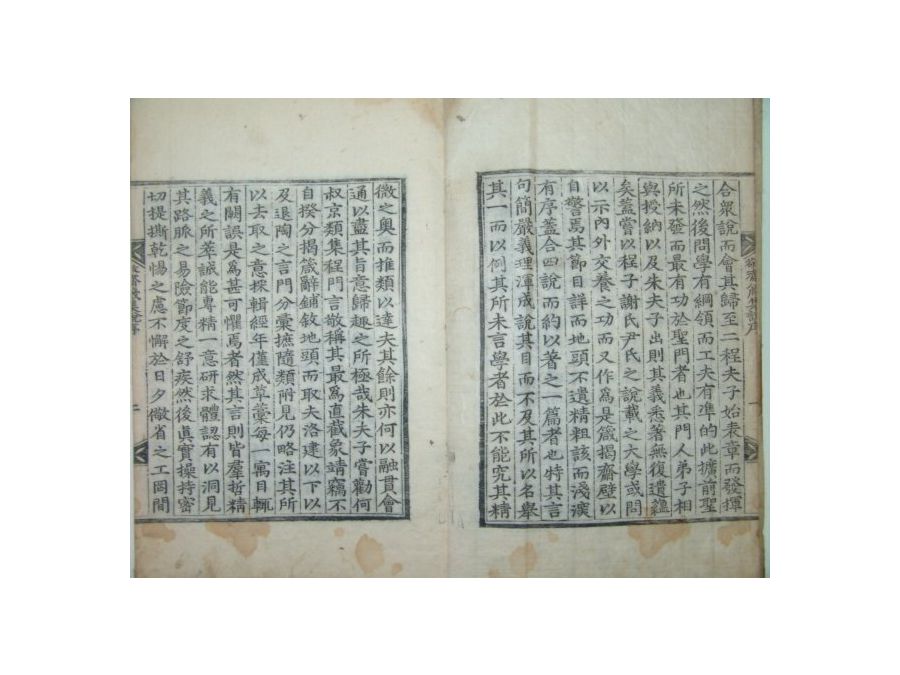 合衆說而會其歸至二程夫子始表章而發揮
之然後問學有綱領而工夫有準的此擴前聖
所未發而最有功於聖門者也其門人弟子相
與授納以及朱夫子出則其義悉著無復遺蘊
矣蓋嘗以程子謝氏尹氏之說載之大學或問
以示內外交養之功而又作爲是箴揭齋壁以
自警焉其節目詳而地頭不遺精粗該而淺深
有序蓋合四說而約以著之一篇者也特其言
句簡嚴義理渾成說其目而不及其所以名擧
其一而以例其所未言學者於此不能究其精
微之奧而推類以達夫其餘則亦何以融貫會
通以盡其旨意歸趣之所極哉朱夫子嘗勸何
叔京類集程門言敬稱其最爲直截象靖竊不
自揆分揭箴辭鋪敘地頭而取夫洛建以下以
及退陶之言門分彙摭隨類附見仍略注其所
以去取之意裒輯經年僅成草藁每一寓目輒
有闕誤是爲甚可懼焉者然其言則皆羣哲精
義之所萃誠能專精一意硏求體認有以洞見
其路脈之易險節度之舒疾然後眞實操持密
切提撕乾惕之慮不懈於日夕儆省之工罔間